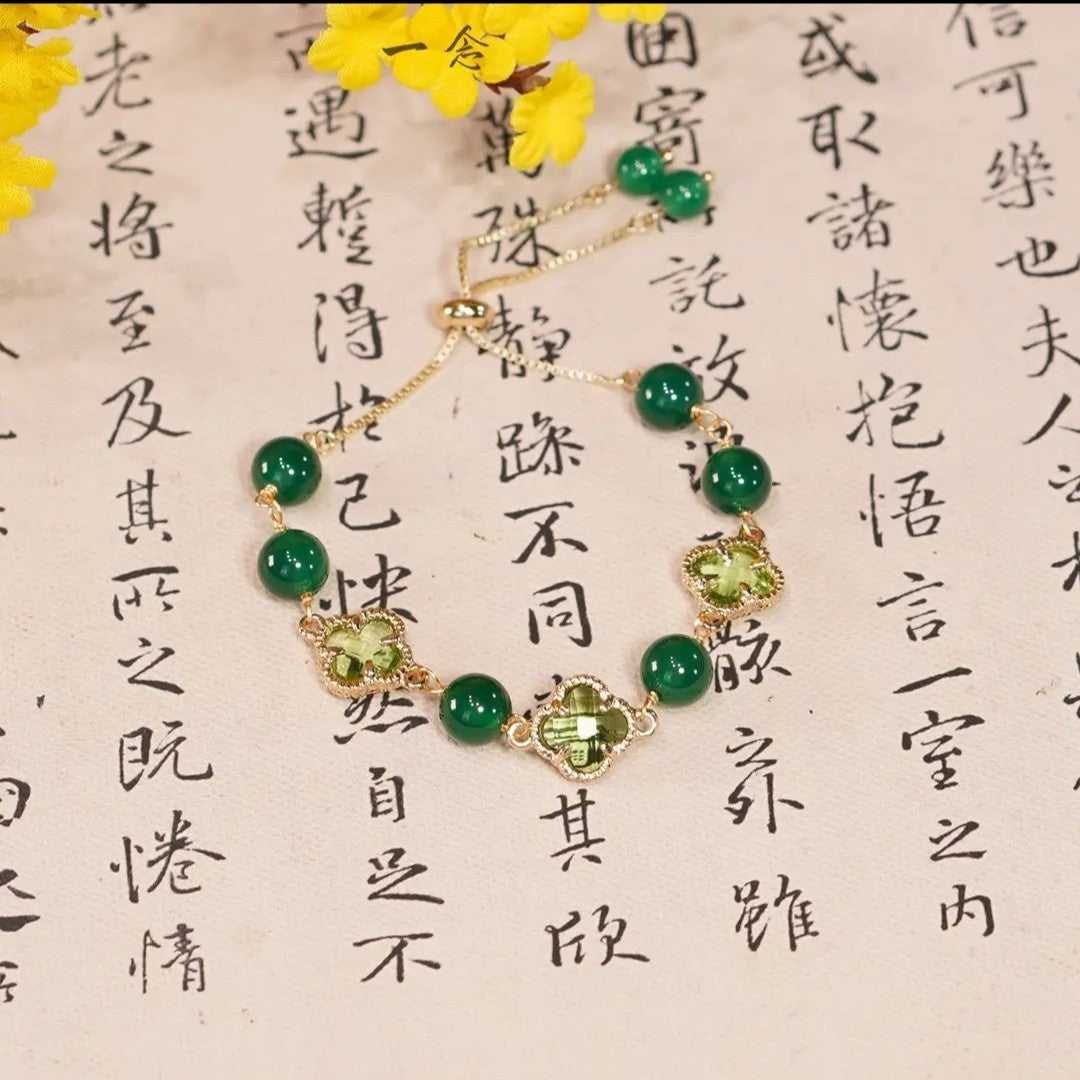 一念
信可樂也夫人之
或取諸懷抱悟言一室之內
因寄託放骸之外雖
萬殊靜躁不同其欣
遇蹔得於己快然自足不
老之將至及其所之既惓情